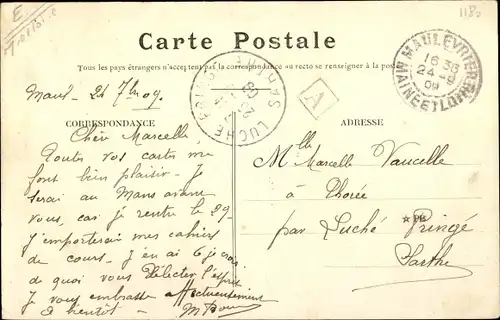 E
1180
Carte Postale
Tous les pays étrangers n'acceptent pas la correspondance au recto se renseigner à la poste
MAULEVRIER
16 30
24 -9
09
MAINE ET LOIRE
LUCHÉ
A
Maul 24 7bre 09.
CORRESPONDANCE
ADRESSE
Chère Marcelle,
Toutes vos cartes me
font bien plaisir. Je
serai au Mans avant
vous, car je rentre le 29.
J'emporterai mes cahiers
de cours. J'en ai 6 je crois
de quoi vous délecter l'esprit
Je vous embrasse affectueusement
à bientôt
Mlle Marcelle Vaucelle
à Thorée
par Luché Pringé
Sarthe